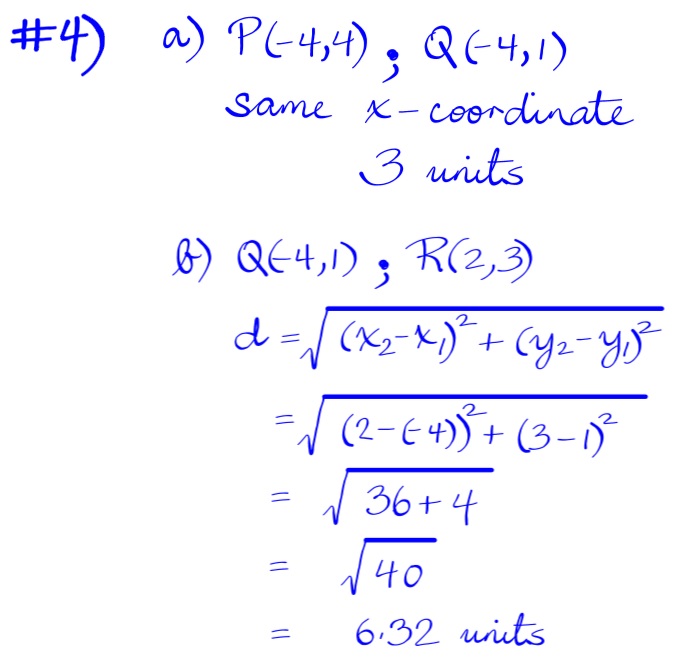 #4) a) P(-4,4) ; Q(-4,1)
same x-coordinate
3 units
b) Q(-4,1) ; R(2,3)
d = √((x₂-x₁)² + (y₂-y₁)²)
= √((2-(-4))² + (3-1)²)
= √(36+4)
= √40
= 6.32 units